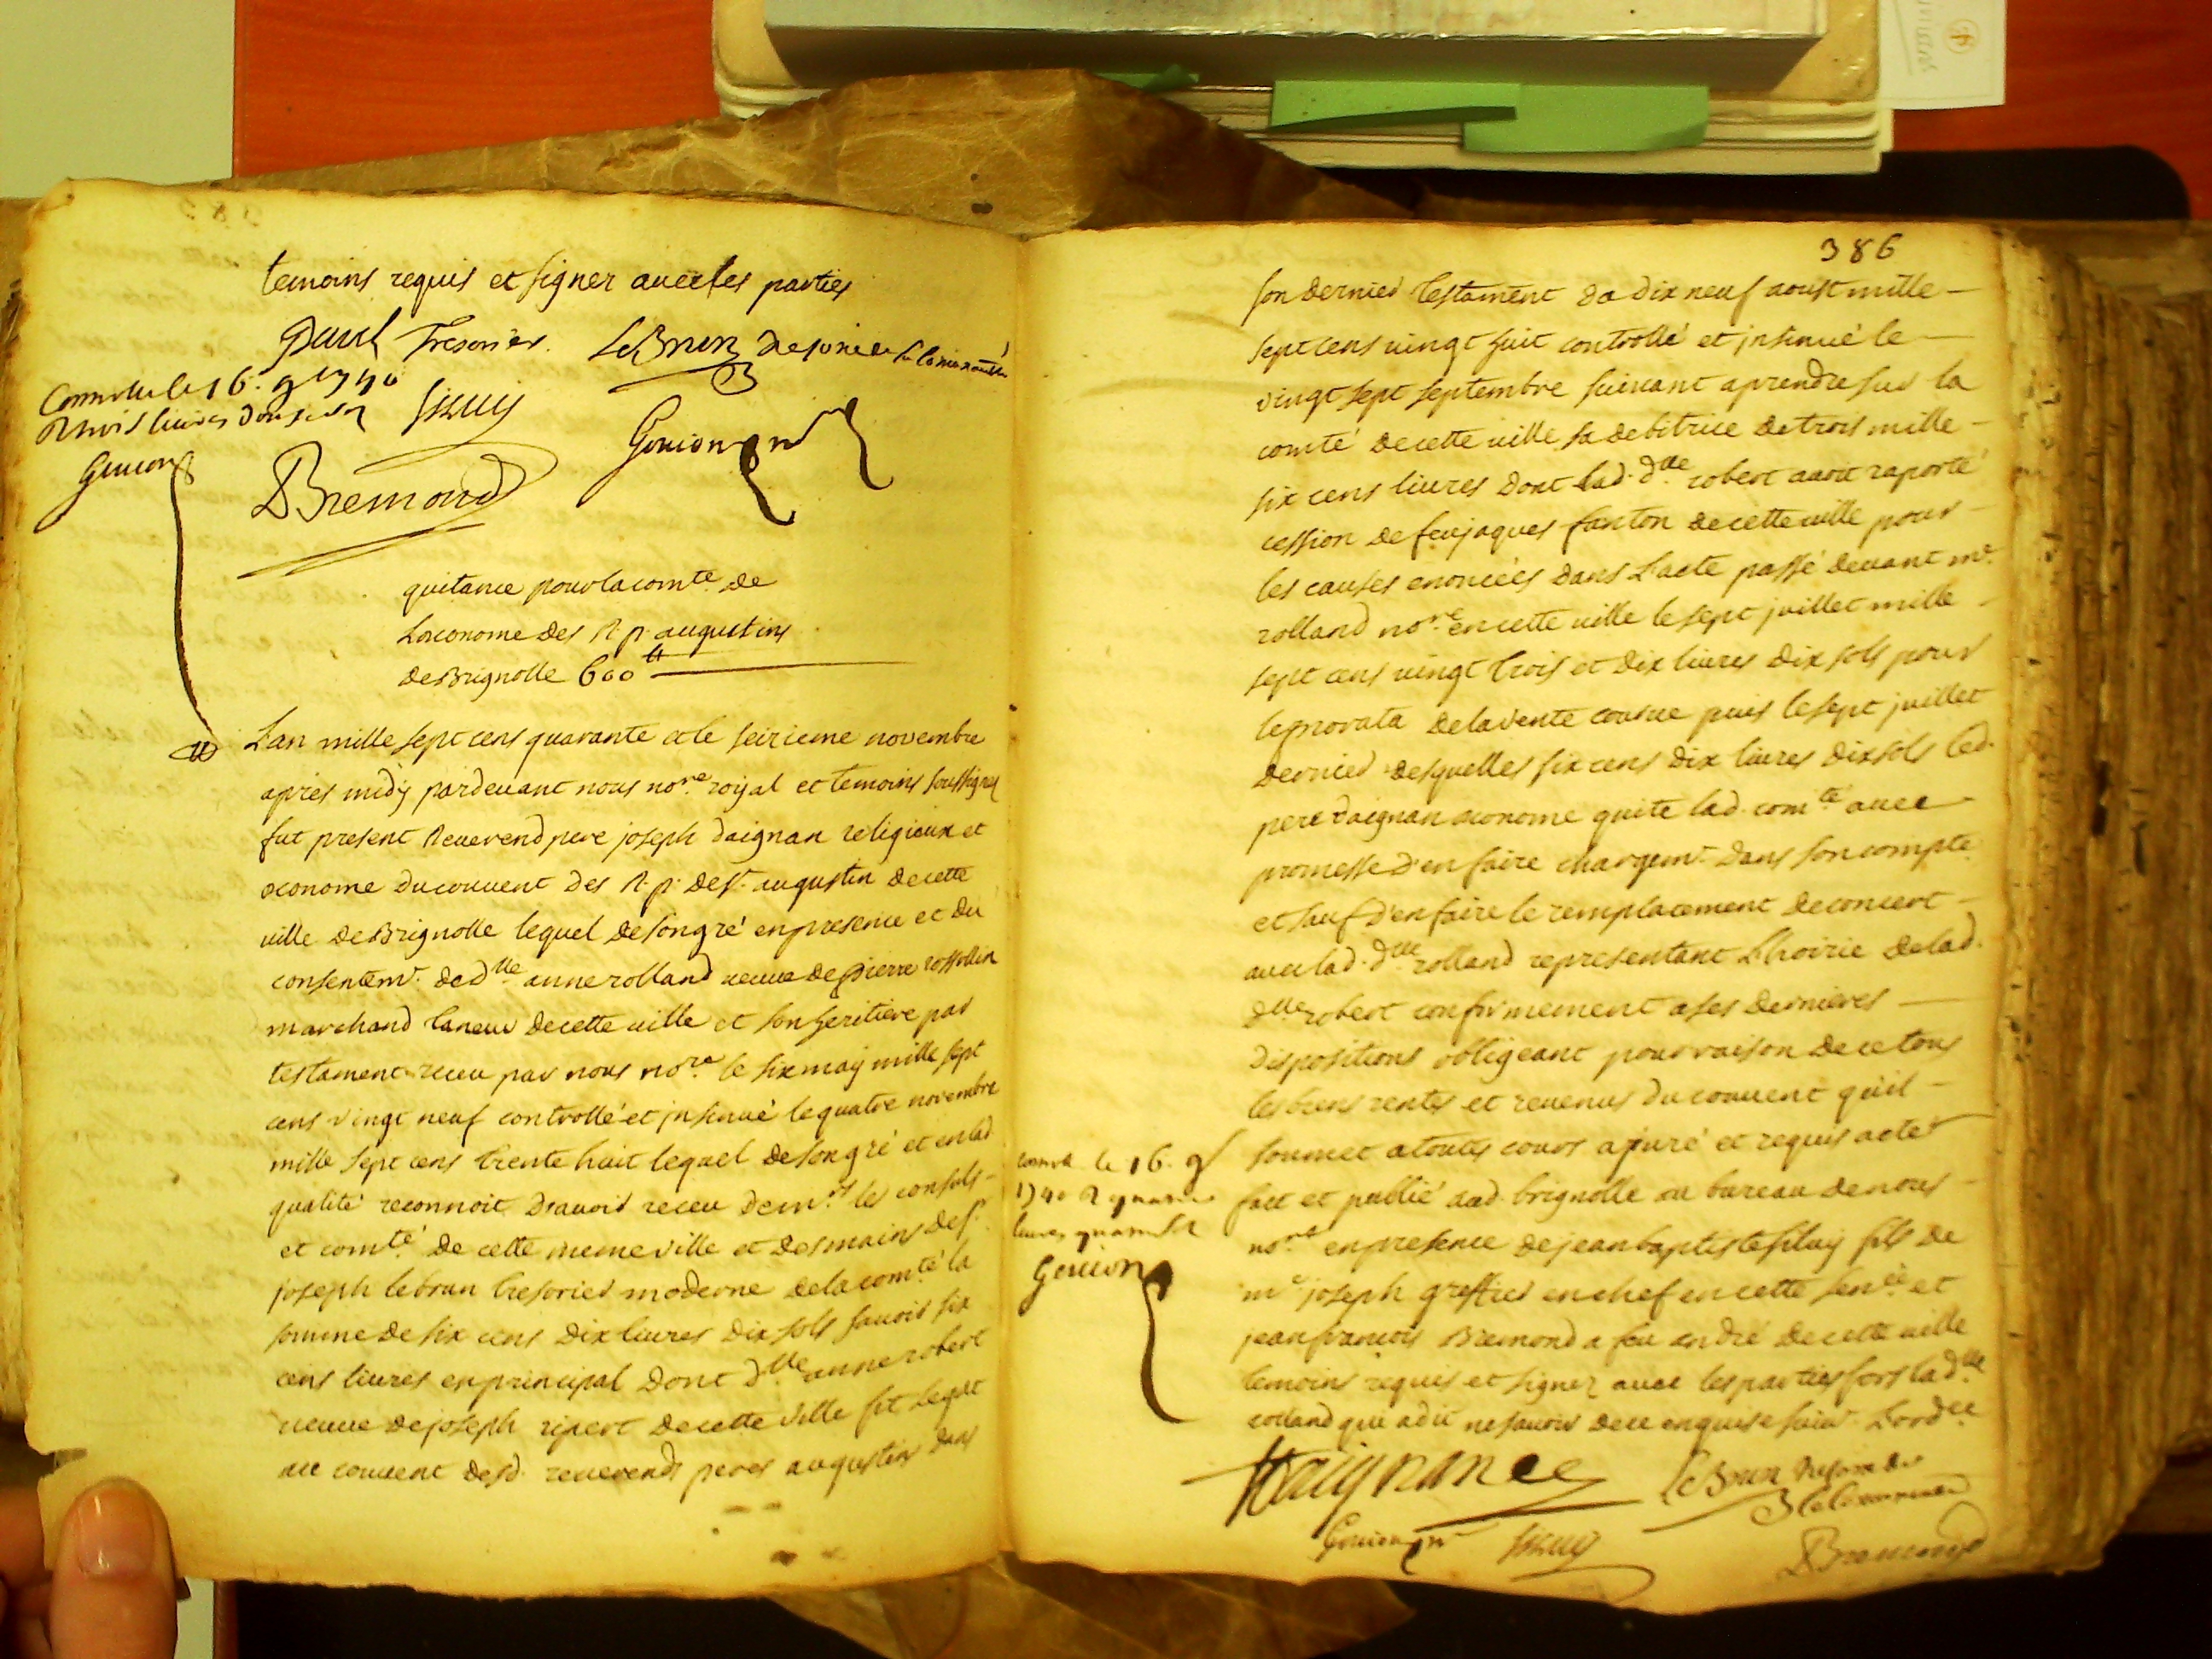 temoins requis et signer avec les parties
Paul Tresorier. LeBrun
Controlle le 16. 9 1740
livres
Silvy
Gouion
Gouion
Bremond
quitance pour la com.te de
L'oeconome des R. p. augustins
de Brignolle 600 tt
L'an mille sept cens quarante et le seizieme novembre
apres midy pardevant nous no.re royal et temoins soussignez
fut present Reverend pere joseph daignan religieux et
oeconome du couvent des R. p. de s.t augustin de cette
ville de Brignolle lequel de son gré en presence et du
consentem.t de d.lle anne rolland veuve de pierre rossollin
marchand taneur de cette ville et son heritiere par
testament receu par nous no.re le six may mille sept
cens vingt neuf controllé et insinué le quatre novembre
mille sept cens trente huit lequel de son gré et en lad.
qualité reconnoit d'avoir receu de m.rs les consuls
et com.té de cette meme ville et des mains de s.r
joseph lebrun tresorier moderne de la com.té la
somme de six cens dix livres dix sols savoir six
cens livres en principal dont d.lle anne robert
veuve de joseph ripert de cette ville fit legat
au couvent desd. reverends peres augustins dans
386
son dernier testament du dix neuf aoust mille
sept cens vingt huit controllé et insinué le
vingt sept septembre suivant a prendre sur la
comté de cette ville sa debitrice de trois mille
six cens livres dont lad. d.lle robert avoit raporté
cession de feu jaques fanton de cette ville pour
les causes enoncées dans L'acte passé devant m.e
rolland no.re en cette ville le sept juillet mille
sept cens vingt trois et dix livres dix sols pour
le prorata de la vente courue puis le sept juillet
dernier desquelles six cens dix livres dix sols led.
pere daignan oeconome quite lad. com.té avec
promesse d'en faire chargem.t dans son compte
et sauf d'en faire le remplacement de concert
avec lad. d.lle rolland representant L'hoirie de lad.
d.lle robert conformement a ses dernieres
dispositions obligeant pour raison de ce tous
les biens rentes et revenus du couvent qu'il
soumet a toutes cours a juré et requis acte
fait et publié aud. brignolle au bureau de nous
no.re en presence de jean baptiste silvy fils de
m.e joseph greffier en chef en cette sen.ée et
jean francois Bremond a feu andré de cette ville
temoins requis et signez avec les parties fors lad. d.lle
rolland qui a dit ne savoir de ce enquise suiv.t L'ord.ce
le 16. 9
1740
livres
Gouion
Daignan LeBrun
Gouion Silvy
Bremond